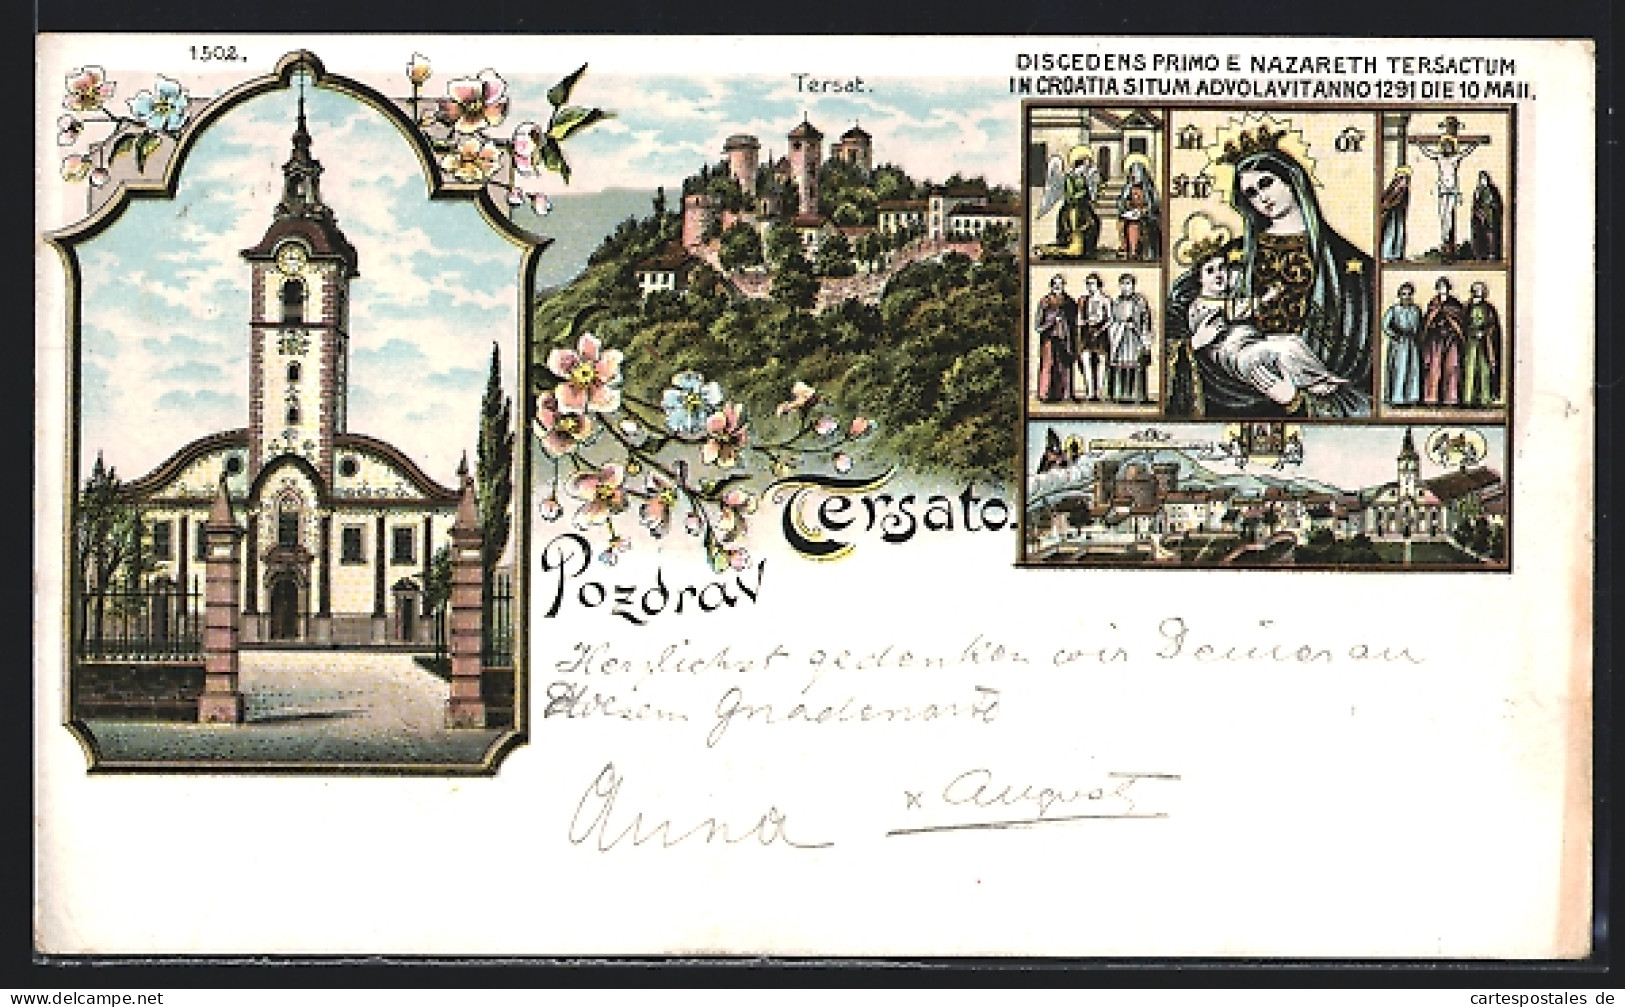 1502.
Tersat.
DISCEDENS PRIMO E NAZARETH TERSACTUM
IN CROATIA SITUM ADVOLAVIT ANNO 1291 DIE 10 MAII.
Pozdrav Tersato.
Herzlichst gedenken wir Deiner an
diesem Gnadenorte
Anna
x August
cartespostales de